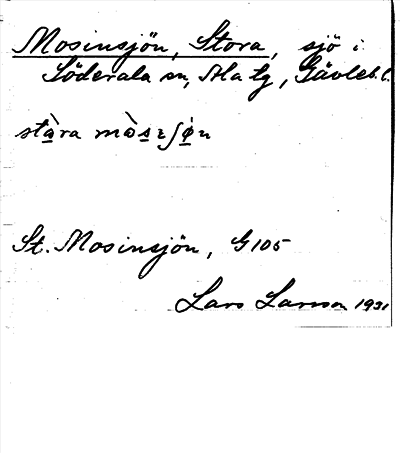 Mosinsjön, Stora, sjö i
Söderala sn, Ala tg, Gävleb. l.
St. Mosinsjön, G 105
Lars Larsson 1931